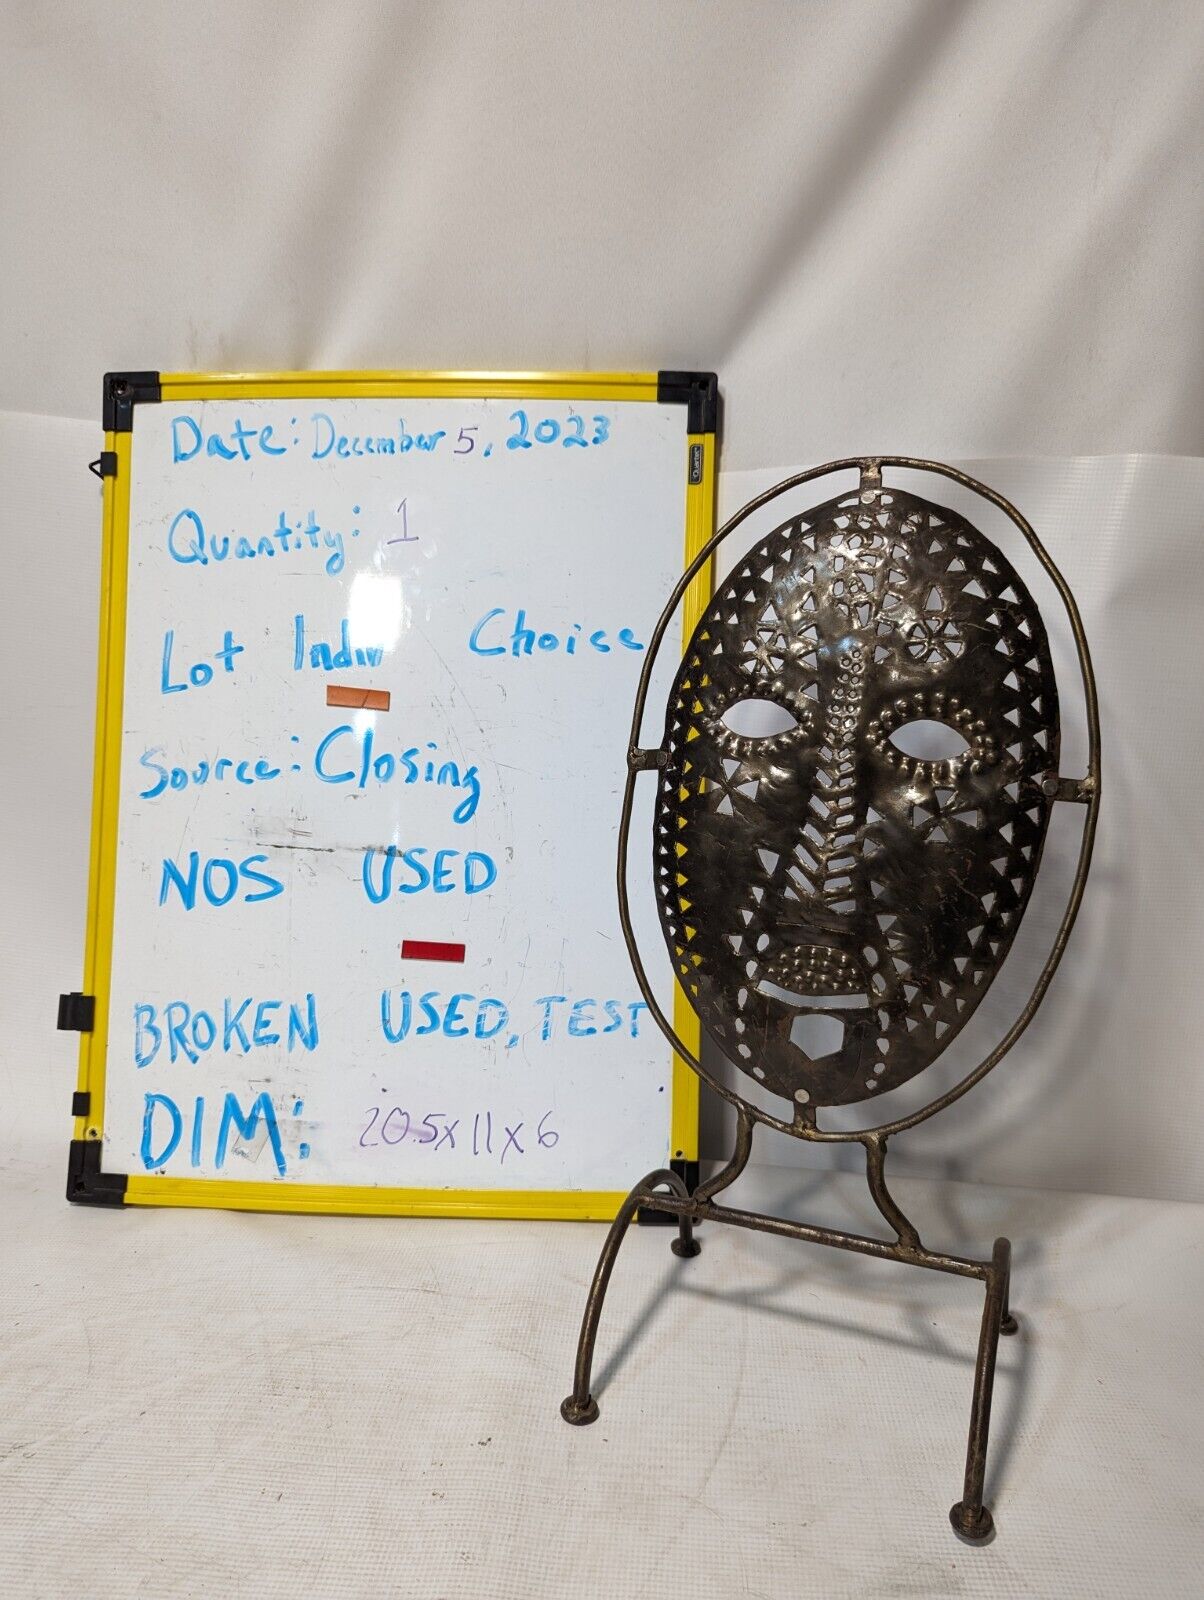 Date: December 5, 2023
Quartet
Quantity: 1
Lot Indiv Choice
Source: Closing
NOS USED
BROKEN USED, TEST
DIM: 20.5x11x6